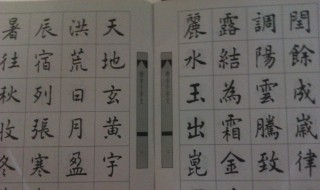 天地玄黃宇
洪荒日月盈
辰宿列張寒
暑往秋收冬
閏餘成歲律
調陽雲騰致
露結為霜金
麗水玉出崑